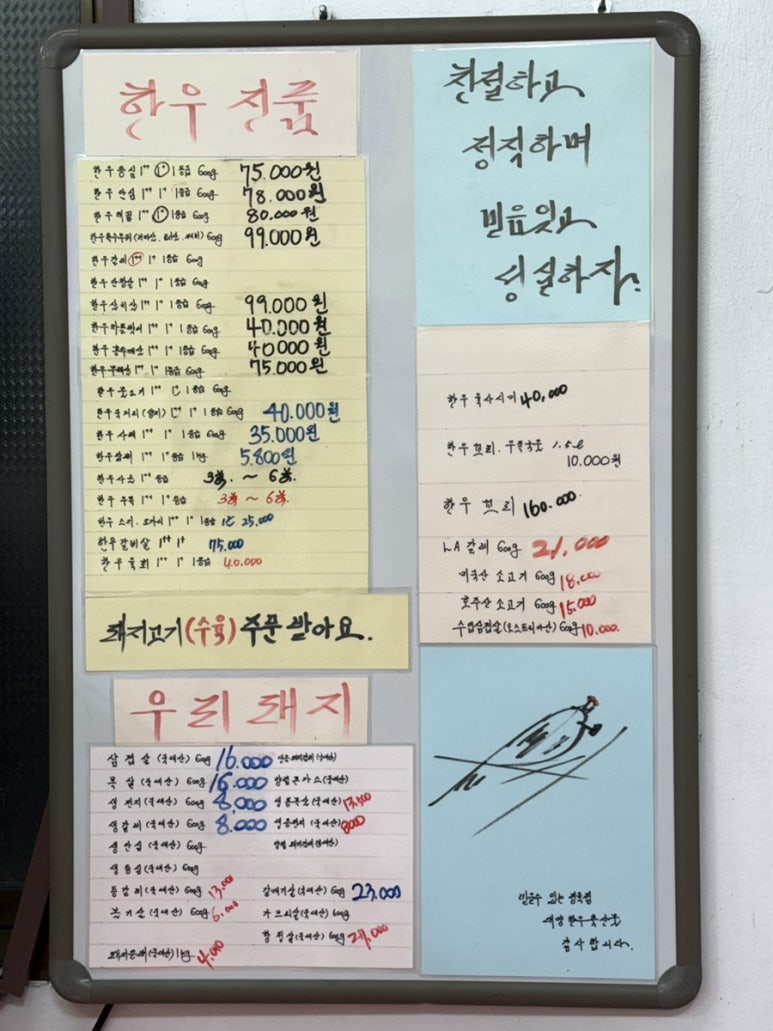 한우 전품
한우등심 1++ 1+ 1등급 600g 75.000원
한우안심 1++ 1+ 1등급 600g 78.000원
한우채끝 1++ 1+ 1등급 600g 80.000원
한우특수부위 600g 99.000원
한우갈비 1++ 1+ 1등급 600g
한우안창살 1++ 1+ 1등급 600g
한우살치살 1++ 1+ 1등급 600g 99.000원
1++ 1+ 1등급 600g 40.000원
1++ 1+ 1등급 600g 40000원
한우부채살 1++ 1+ 1등급 600g 75.000원
한우불고기 1++ 1+ 1등급 600g
한우국거리(양지) 1++ 1+ 1등급 600g 40.000원
한우사태 1++ 1+ 1등급 600g 35.000원
한우잡뼈 1++ 1+ 1등급 1kg 5.800원
한우사골 1++ 1+ 등급 3萬. ~ 6萬.
한우우족 1++ 1+ 등급 3萬 ~ 6萬.
25.000
한우갈비살 1++ 1+ 75.000
한우육회 1++ 1+ 1등급 40.000
돼지고기(수육) 주문 받아요.
우리돼지
삼겹살(국내산) 600g 16.000
목살(국내산) 600g 16.000 양념돈가스(국내산)
생전지(국내산) 600g 8.000 (국내산) 13.500
생갈비(국내산) 600g 8.000 (국내산) 8000
생안심(국내산) 600g 양념돼지갈비(국내산)
생등심(국내산) 600g
등갈비(국내산) 600g 13.000 갈매기살(국내산) 600g 23.000
(국내산) 600g 6.000 가브리살(국내산) 600g
항정살(국내산) 600g
(국내산) 1kg 4.000
친절하고
정직하며
믿음있고
성실하자.
한우 육사시미 40.000
한우꼬리.우족곰국 1.5ℓ
10.000원
한우 꼬리 160.000
LA갈비 600g 21.000
미국산 소고기 600g 18.000
호주산 소고기 600g 15.000
수입삼겹살(오스트리아산) 600g 10.000
믿을수 있는 정육점
한우축산물
감사합니다.